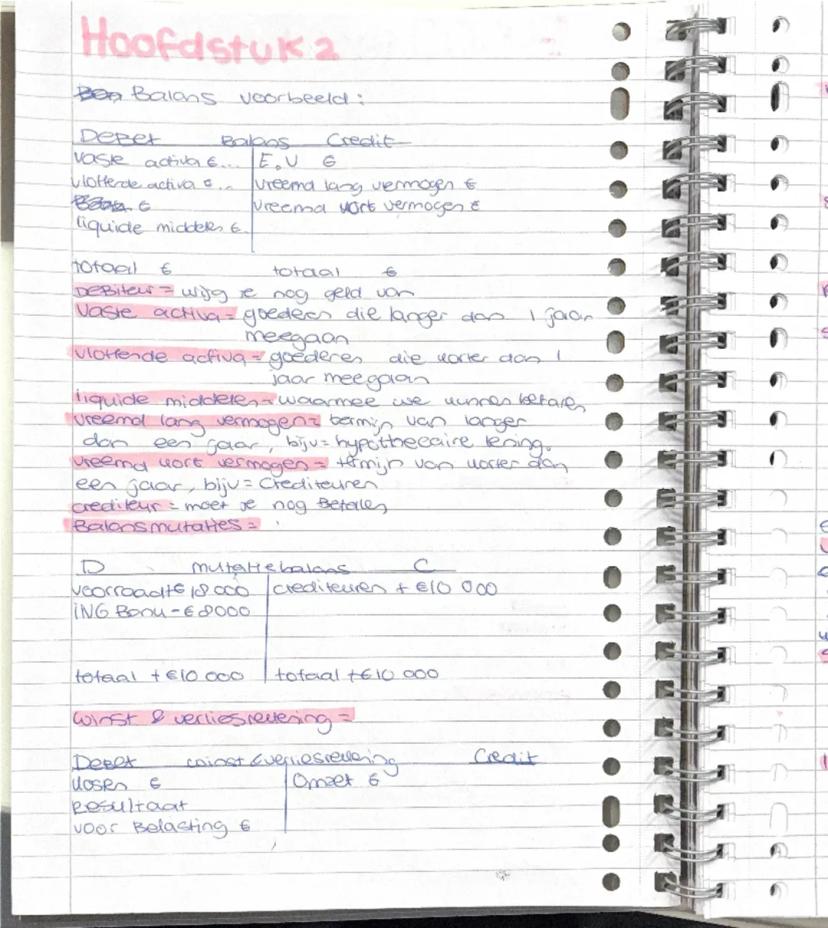 Hoofdstuk 2
Balans voorbeeld:
Debet Balans Credit
vaste activa €... E.V €
vlottende activa €... vreemd lang vermogen €
€ vreemd kort vermogen €
liquide middelen €
totaal € totaal €
Debiteur = krijg je nog geld van
Vaste activa = goederen die langer dan 1 jaar
meegaan
vlottende activa = goederen die korter dan 1
jaar meegaan
liquide middelen = waarmee we kunnen betalen
vreemd lang vermogen = termijn van langer
dan een jaar, bijv = hypothecaire lening.
vreemd kort vermogen = termijn van korter dan
een jaar, bijv = Crediteuren
crediteur = moet je nog Betalen
Balansmutaties =
D mutatiebalans C
voorraad+€ 18 000 crediteuren + €10 000
ING Bank -€8000
totaal +€10 000 totaal +€10 000
winst & verliesrekening =
Debet winst & verliesrekening Credit
kosen € Omzet €
Resultaat
voor Belasting €